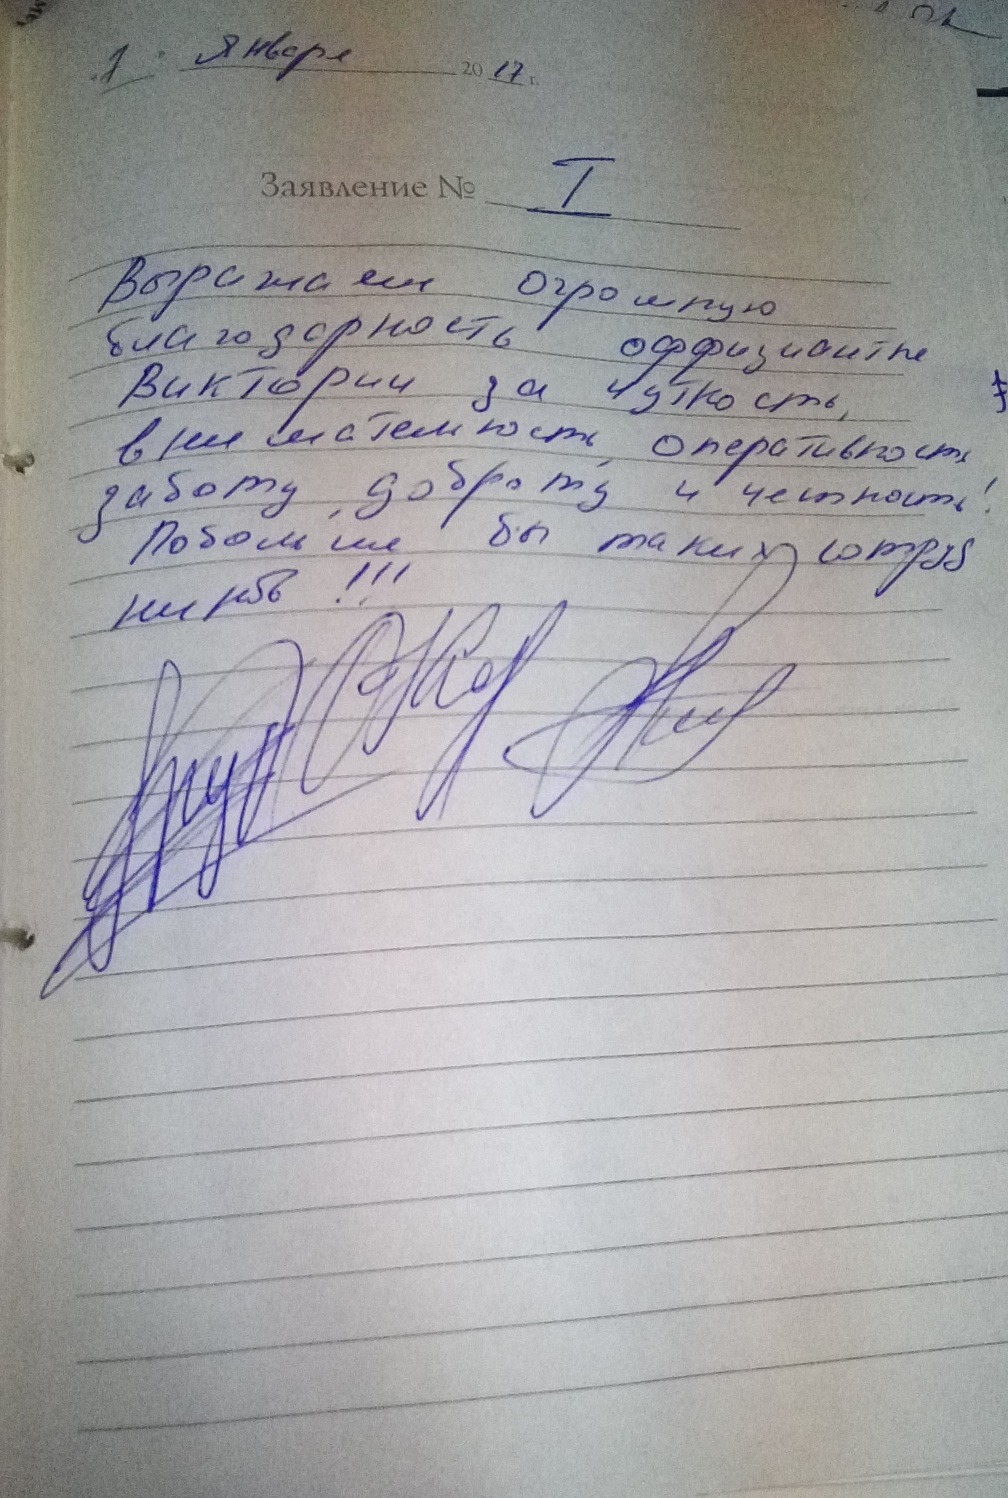 1 Января 2017 г.
Заявление № I
Выражаем огромную
благодарность оффициантке
Виктории за чуткость,
внимательность, оперативность
заботу, доброту и честность!
Побольше бы таких сотруд
ников !!!